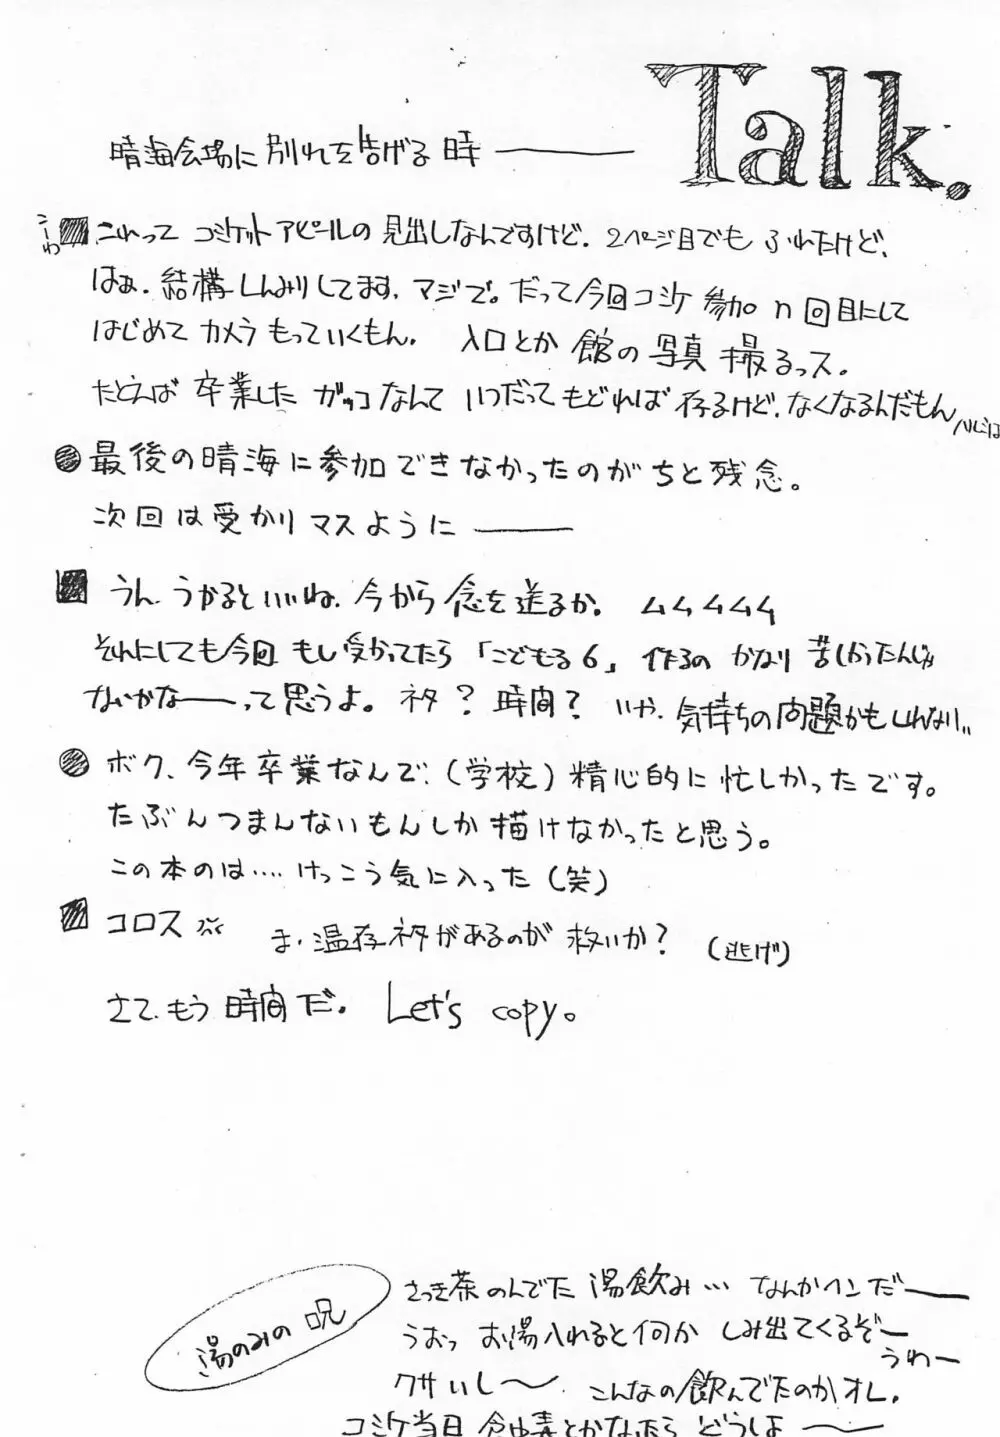 Talk.
晴海会場に別れを告げる時 ――
こーわ
これって コミケットアピールの 見出しなんですけど. 2ページ目でも ふれたけど、
はぁ. 結構しんみりしてます. マジで。だって今回コミケ 参加 n 回目にして
はじめて カメラ もっていくもん. 入口とか 館の 写真 撮るっス。
たとえば 卒業した ガッコなんて いつだって もどれば 存るけど. なくなるんだもん ハルミは
●最後の晴海に参加できなかったのがちと残念。
次回は受かりマスように ――
うん. うかるといいね. 今から 念を送るか. ムムムムム
それにしても今回 もし受かってたら 「こどもる6」 作るの かなり 苦しかったんじゃ
ないかなーーって思うよ。 ネタ? 時間? いや. 気持ちの問題かもしれない..
●ボク、今年卒業なんで、(学校) 精心的に忙しかったです。
たぶんつまんないもんしか描けなかったと思う。
この本のは…. けっこう気に入った (笑)
コロス ま. 温存ネタがあるのが 救いか? (逃げ)
さて. もう 時間だ. Let's copy。
湯のみの呪
さっき茶のんでた 湯飲み… なんかヘンだ――
うおっ お湯入れると何か しみ出てくるぞー
うわー
クサいし〜. こんなの飲んでたのかオレ.
コミケ当日 食中毒とかなったら どうしよ 〜